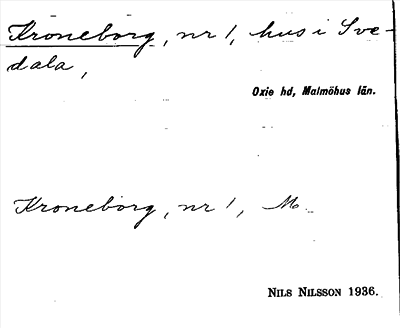 Kroneborg, nr 1, hus i Sve-
dala,
Oxie hd, Malmöhus län.
Kroneborg, nr 1, Mo.
NILS NILSSON 1936.